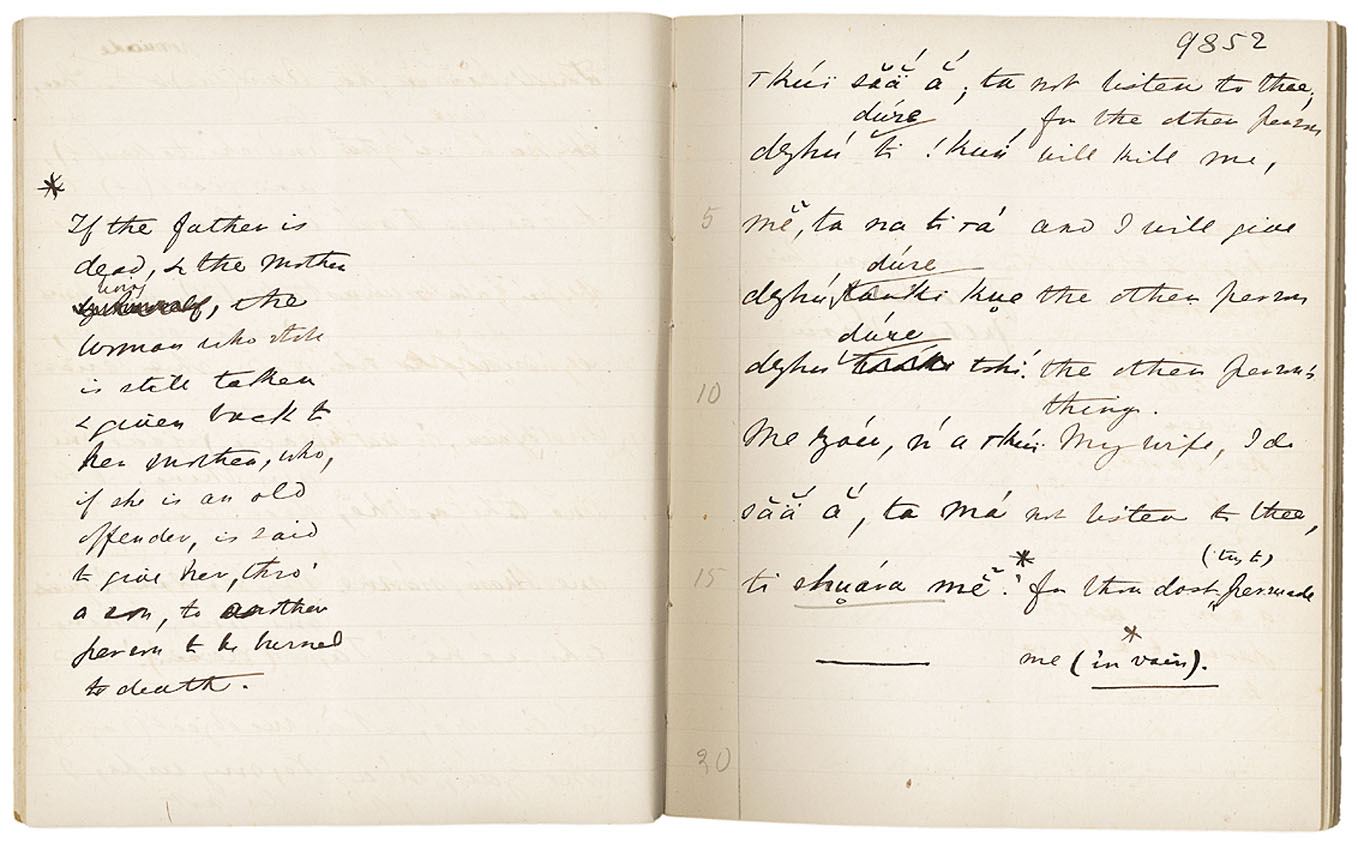 *
If the father is
dead, & the mother
living
, the
woman who stole
is still taken
& given back to
her mother, who,
if she is an old
offender, is said
to give her, thro'
a son, to another
person to be burned
to death.
9852
not listen to thee;
dúre for the other person
dzhú ti !kuń will kill me,
5 mĕ, ta na ti and I will give
dúre
dzhú the other person
dúre
dzhú tshí. the other person's
10 thing.
My wife, I do
săä́ ắ, ta má not listen to thee,
* (try to)
15 ti shuára mĕ. for thou dost persuade
*
me (in vain).
20